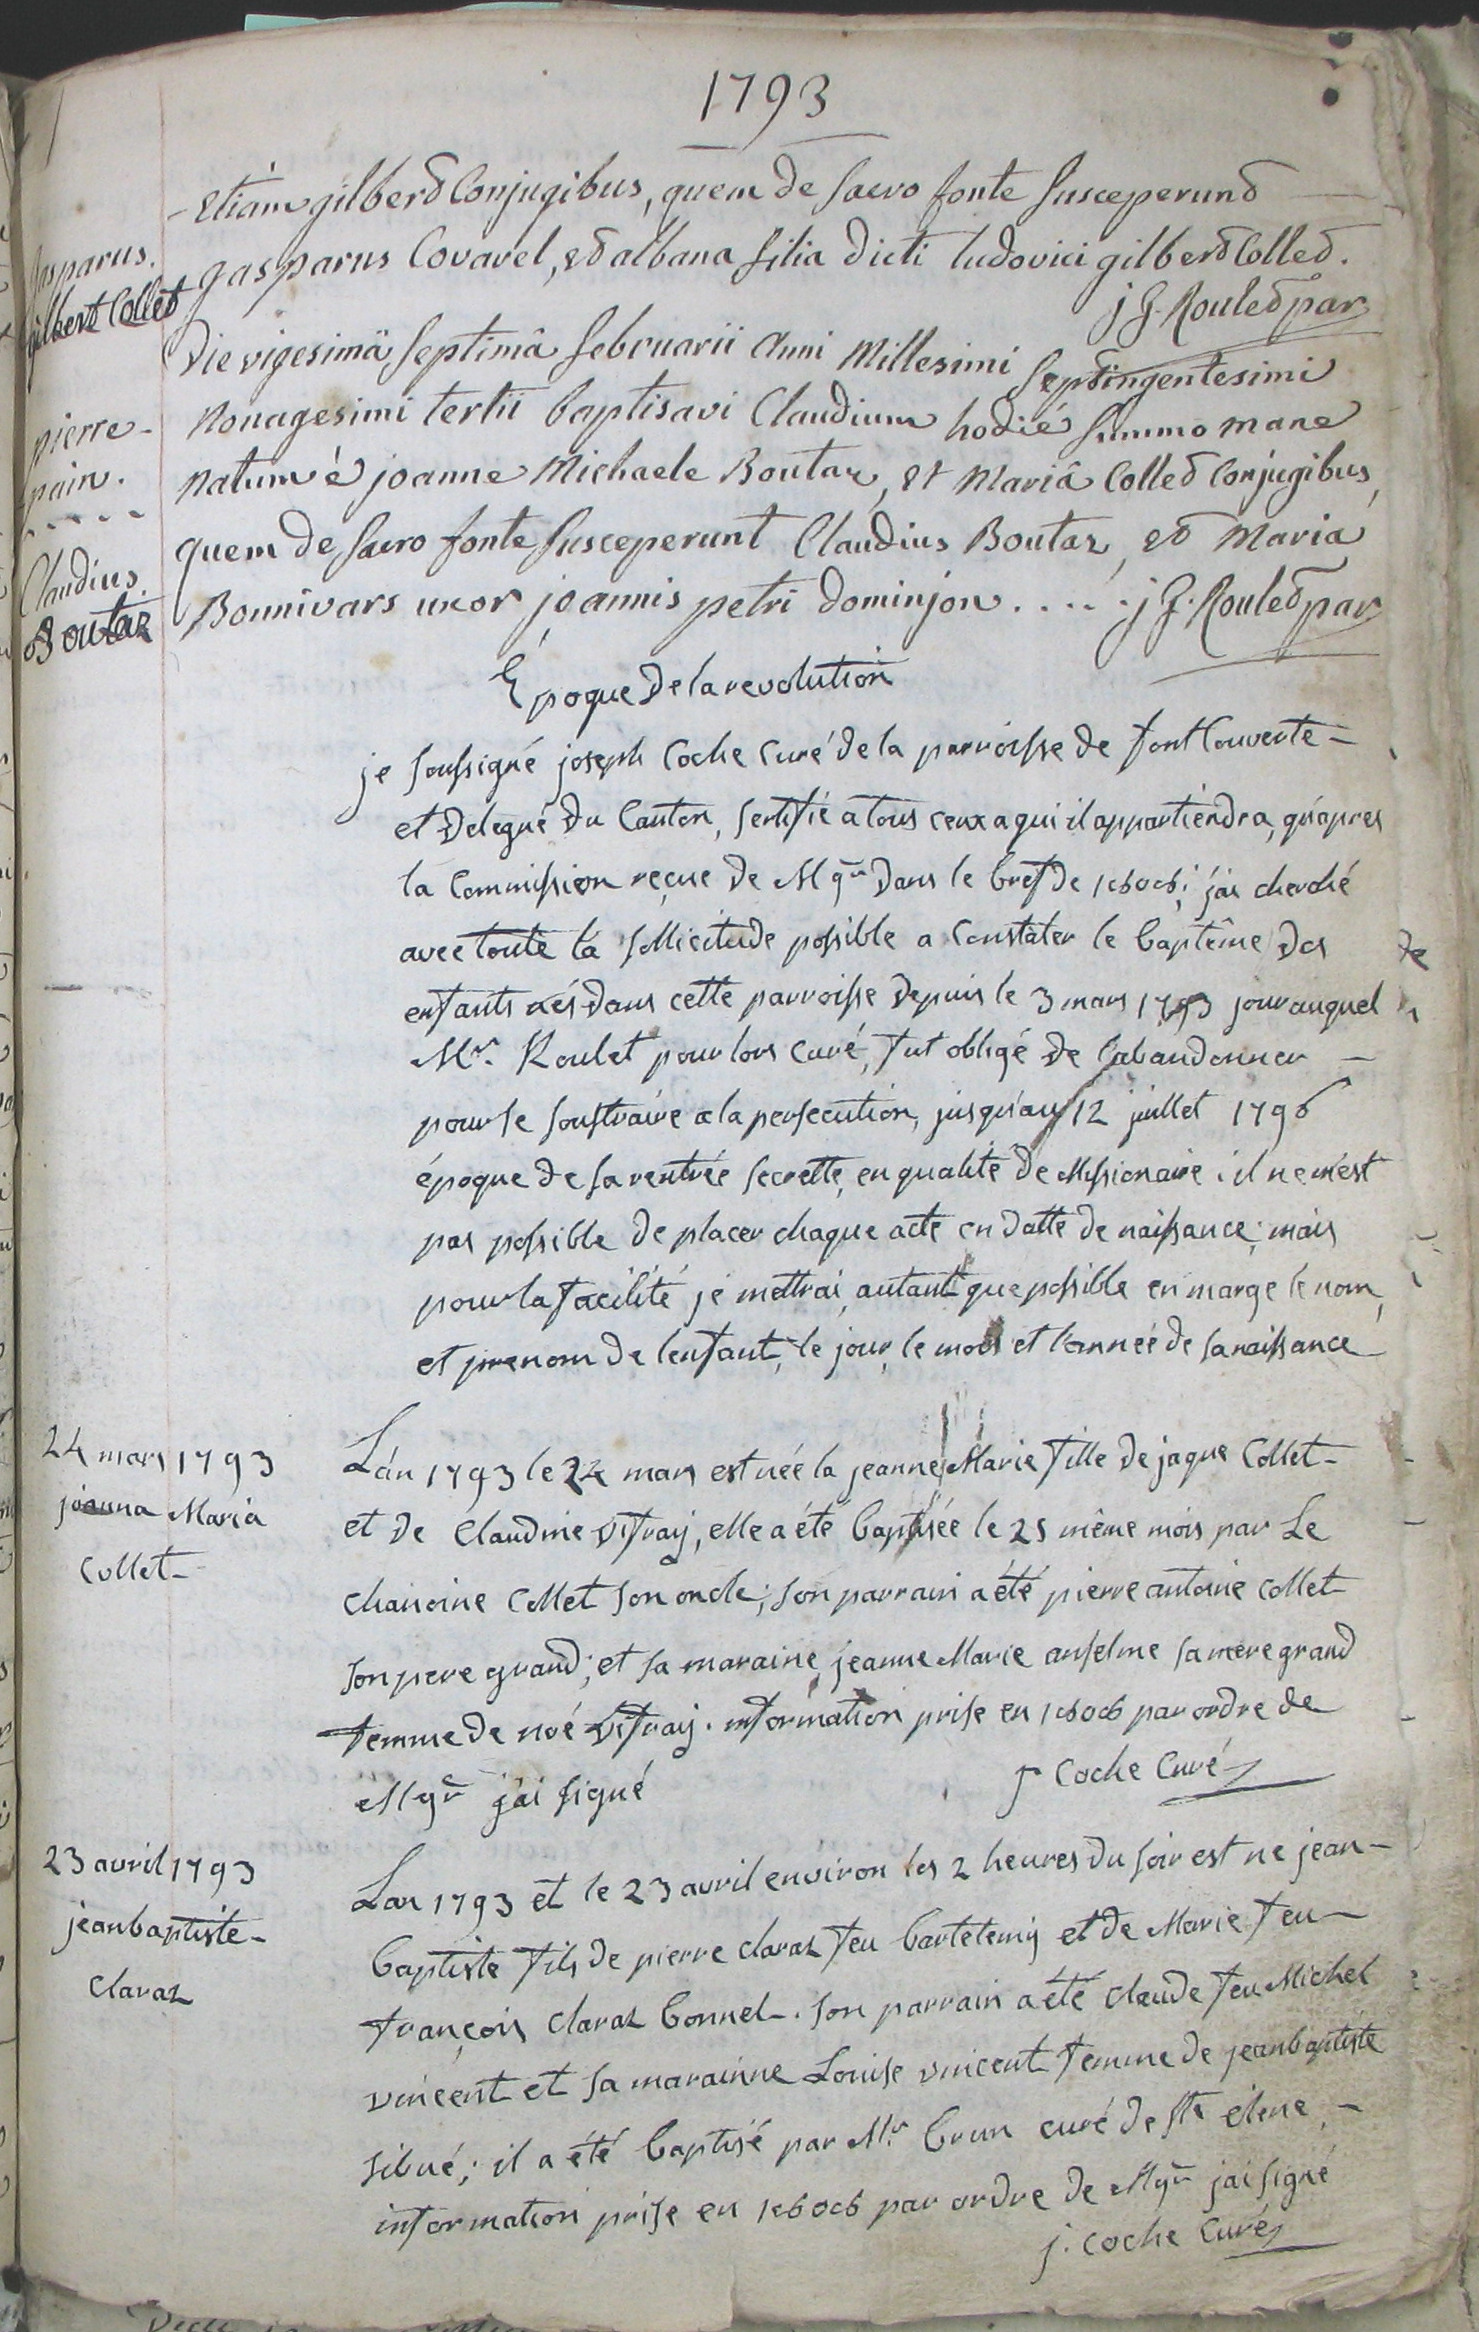 1793
etiam gilbert Conjugibus, quem de sacro fonte susceperunt
gasparus.
gilbert Collet
gasparus Covarel, et albana filia dicti ludovici gilbert Collet.
j J. Roulet par
Die vigesimâ septimâ februarii anni Millesimi septingentesimi
pierre-
pain.
nonagesimi tertii baptisavi Claudium hodié summo mane
natum é joanne Michaele Boutaz, et Mariâ Collet Conjugibus,
Claudius.
Boutaz
quem de sacro fonte susceperunt Claudius Boutaz, et Maria
Bonnivars uxor joannis petri dominjon..... j J. Roulet par
Epoque de la revolution
je soussigné joseph Coche Curé de la parroisse de fontCouverte-
et Delegué du Canton, sertifie a tous ceux a qui il appartiendra, qu'apres
la Commission reçue de Mgr dans le bref de 1806; j'ai cherché
avec toute la sollicitude possible a Constater le baptême des
enfants nés dans cette parroisse depuis le 3 mars 1793 jour auquel
Mr. Roulet pour lors curé, fut obligé de l'abandonner -
pour se soustraire a la persecution, jusqu'au 12 juillet 1796
époque de sa rentrée secrette, en qualité de Missionaire. il ne m'est
pas possible de placer chaque acte en datte de naissance; mais
pour la facilité je mettrai, autant que possible en marge le nom,
et prenom de l'enfant, le jour, le mois et l'année de sa naissance
24 mars 1793
joanna Maria
Collet-
L'an 1793 le 24 mars est née la jeanne Marie fille de jaque Collet-
et de Claudine Vifray, elle a été baptisée le 25 même mois par Le
chanoine Collet son oncle; son parrain a été pierre antoine Collet
son pere grand; et sa maraine, jeanne Marie anselme sa mere grand
femme de noé Vifray. information prise en 1806 par ordre de
Mgr j'ai signé
J Coche Curé
23 avril 1793
jean baptiste-
Claraz
Lan 1793 et le 23 avril environ les 2 heures du soir est ne jean-
baptiste fils de pierre Claraz feu bartelemy et de Marie feu-
françois Claraz bonnel. son parrain a été Claude feu Michel
vincent et sa marainne Louise vincent femme de jean baptiste
sibué; il a été baptisé par Mr. brun curé de ste elene,-
information prise en 1806 par ordre de Mgr jai signé
j. Coche Curé